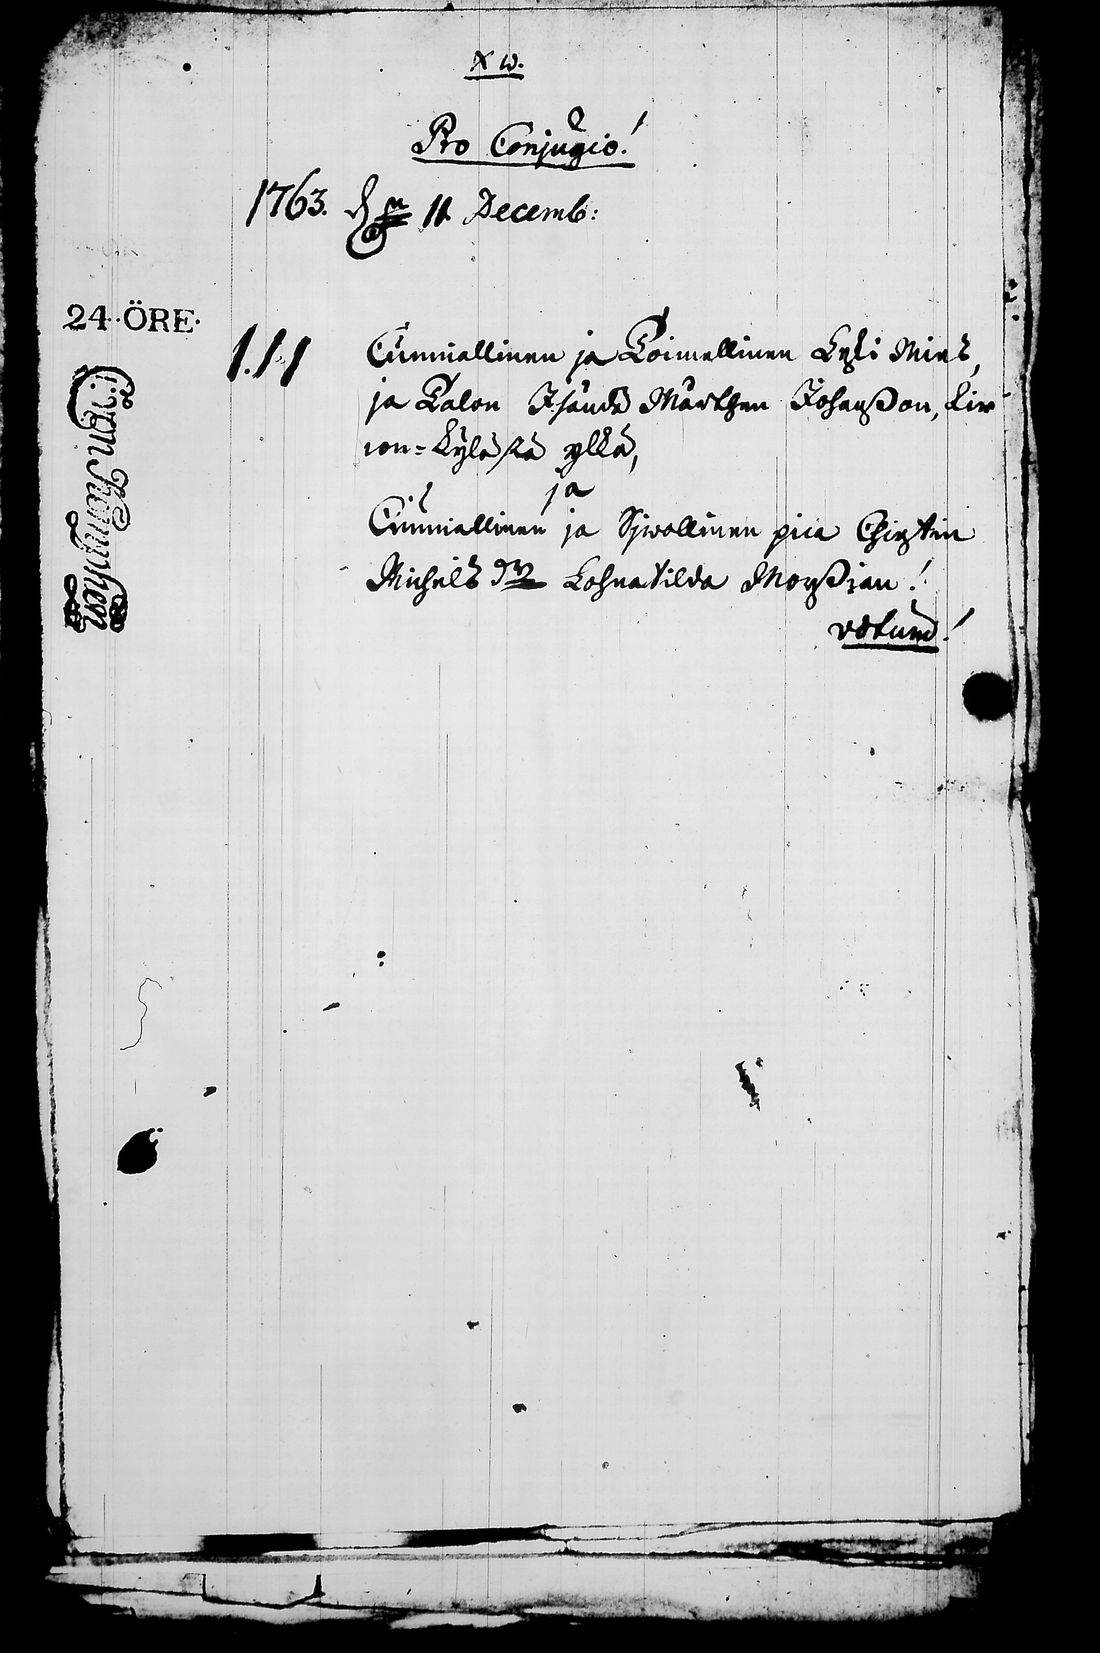 X w.
Pro Conjugio!
1763. d 11 Decemb:
24 ÖRE
1.1.1 Cunniallinen ja Toimellinen Lexi Mies,
ja Talon Isändä Märthen Johanßon,
Kyläsä ylkä,
ja
Cunniallinen ja Sjwollinen pica Chirstin
Michels dr Kohnatilda Morßian!